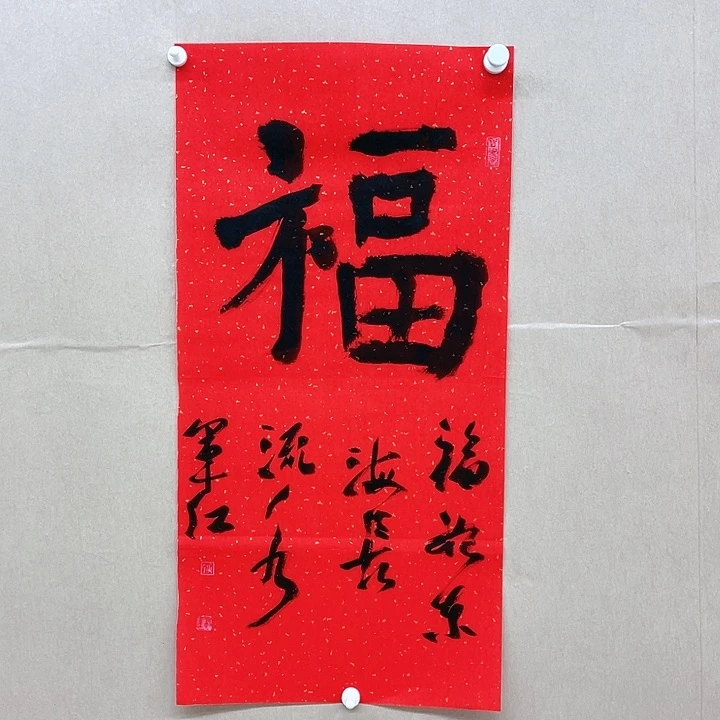 福
福如东
海长
流水
军红